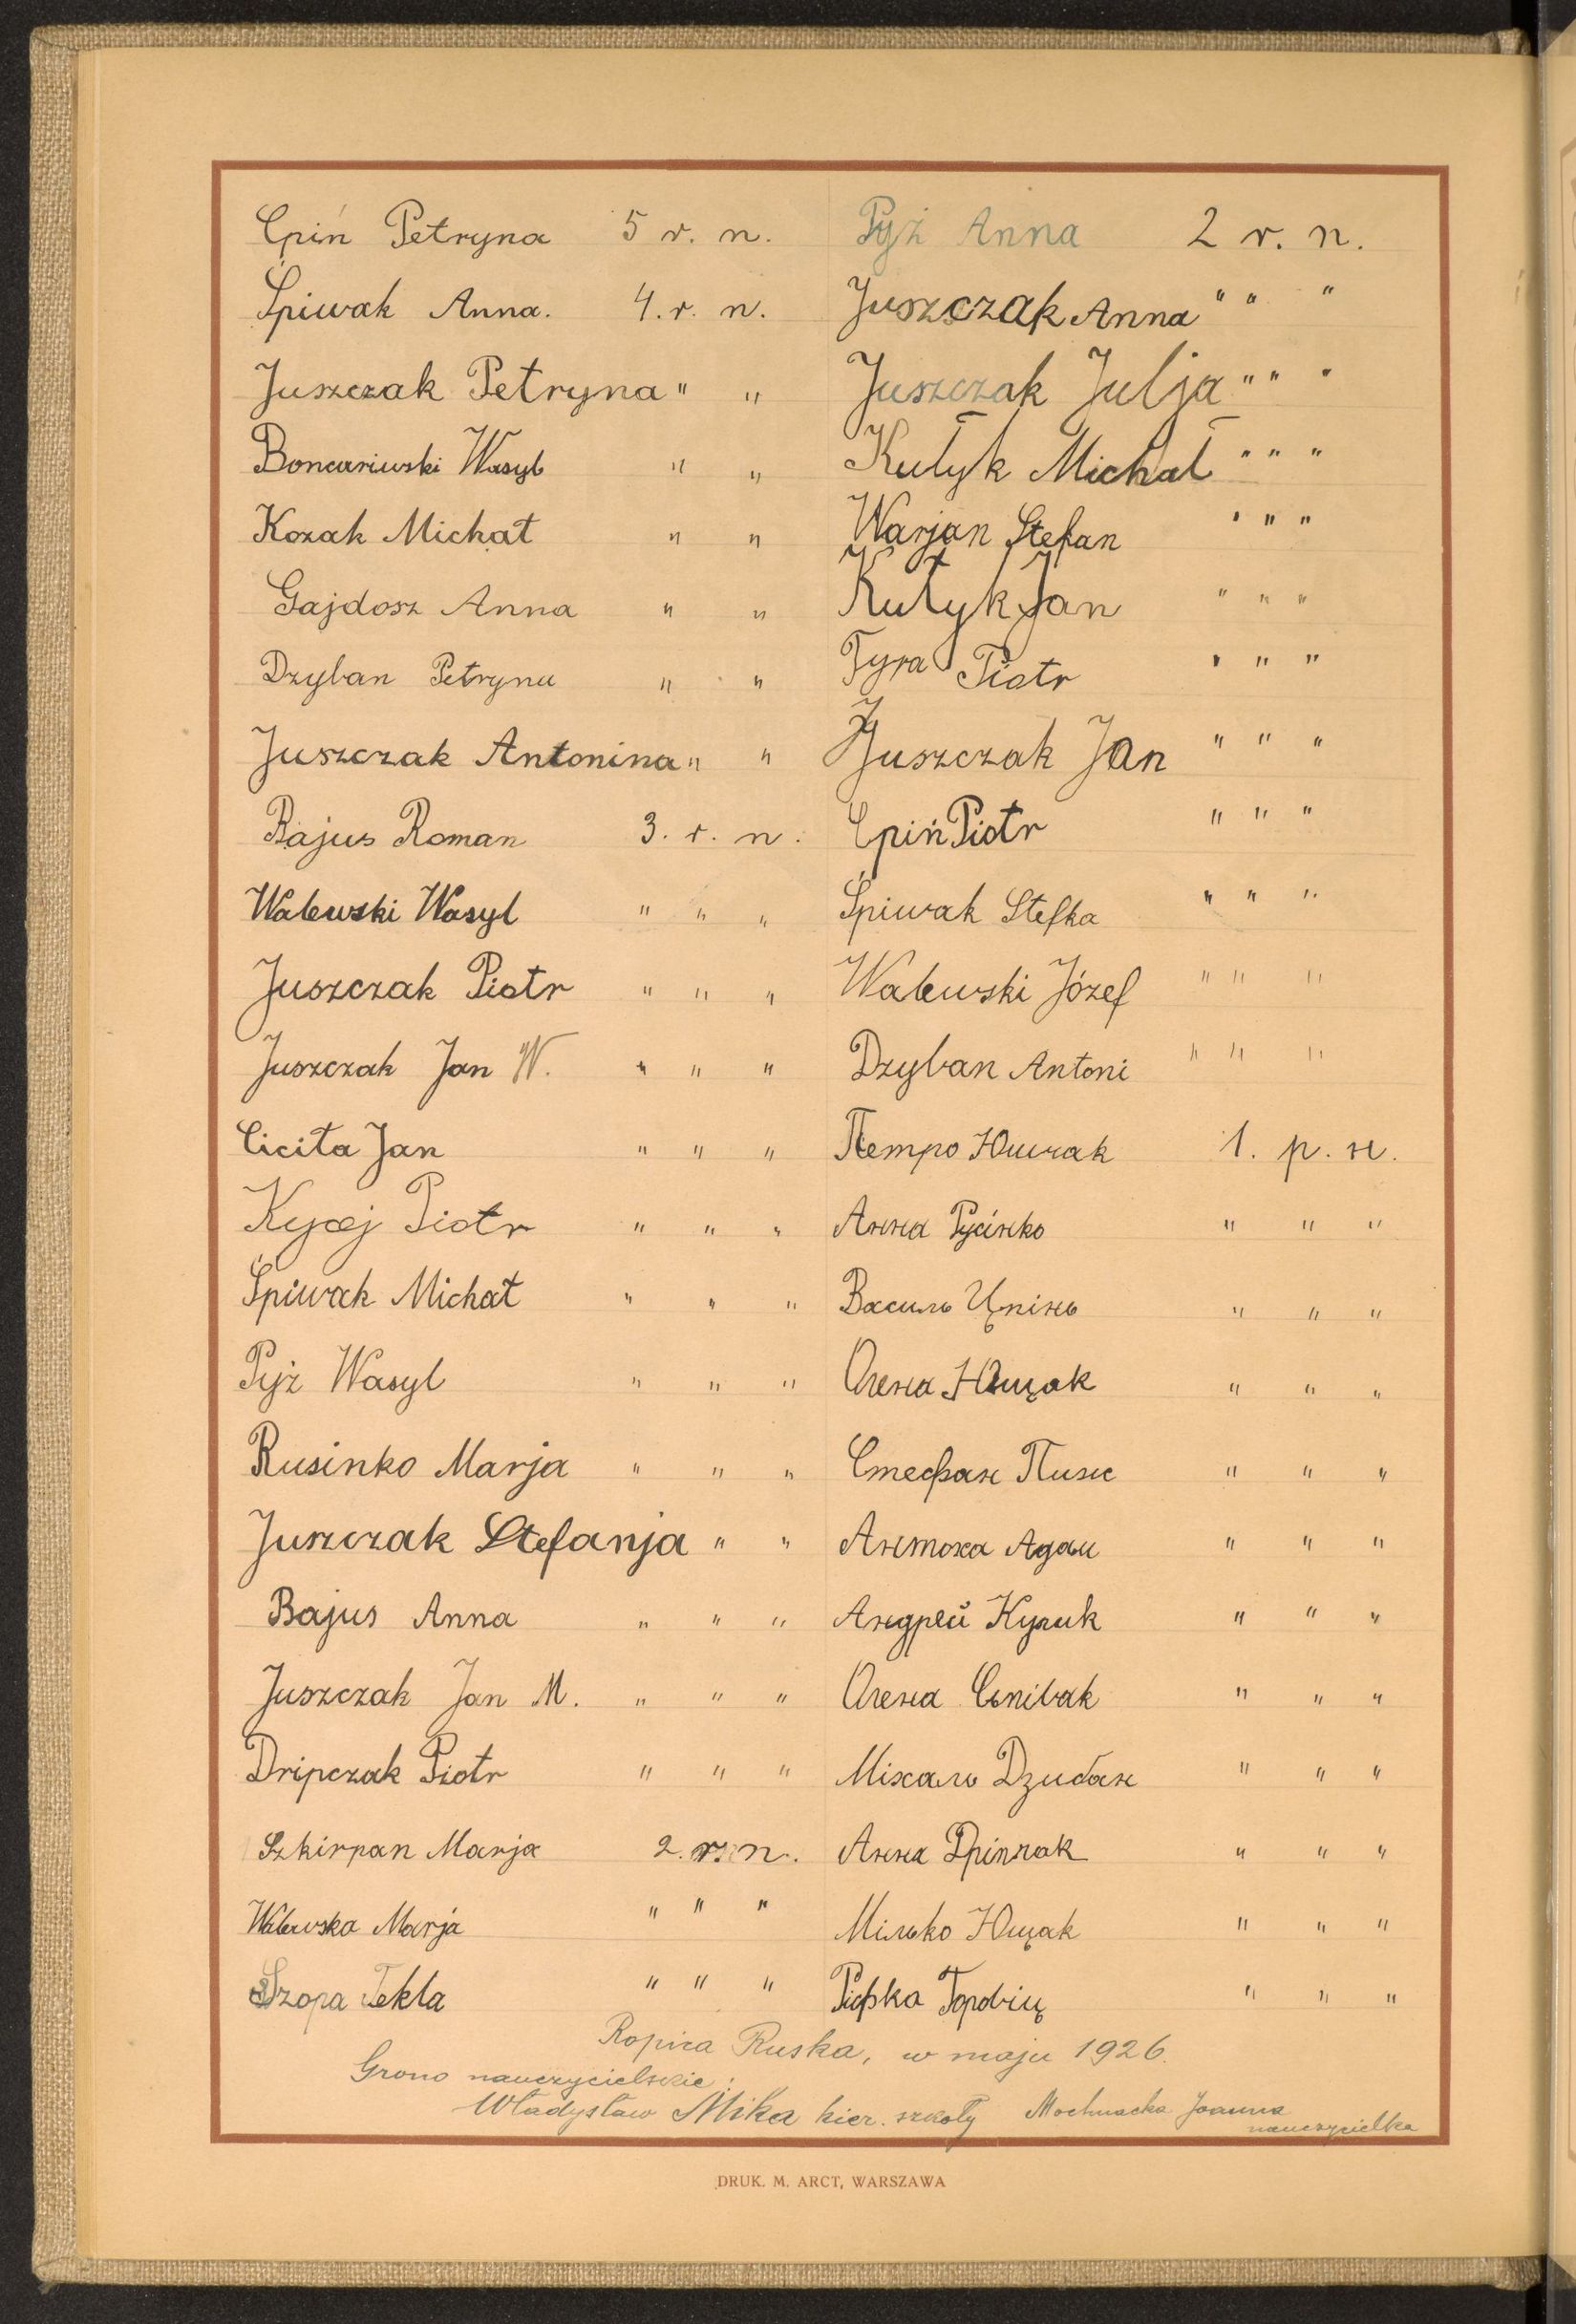 Cpiń Petryna 5 r. n.
Śpiwak Anna. 4. r. n.
Juszczak Petryna " "
Boncariwski Wasyl " "
Kozak Michał " "
Gajdosz Anna " "
Dzyban Petryna " "
Juszczak Antonina " "
Bajus Roman 3. r. n.
Walewski Wasyl " " "
Juszczak Piotr " " "
Juszczak Jan W. " " "
Cicita Jan " " "
Piotr " " "
Śpiwak Michał " " "
Pyż Wasyl " " "
Rusinko Marja " " "
Juszczak Stefanja " "
Bajus Anna " " "
Juszczak Jan M. " " "
Dripczak Piotr " " "
Szkirpan Marja 2. r. n.
Walewska Marja " " "
Szopa Tekla " " "
Pyż Anna 2 r. n.
Juszczak Anna " " "
Juszczak Julja " " "
Kułyk Michał " " "
Warjan Stefan " " "
Kułyk Jan " " "
Tyra Piotr " " "
Juszczak Jan " " "
Cpiń Piotr " " "
Śpiwak Stefka " " "
Walewski Józef " " "
Dzyban Antoni " " "
Петро Юшчак 1. р. н.
Анна Русінко " " "
Василь Цпінь " " "
Олена Ющак " " "
Стефан Пиж " " "
Антоха Адам " " "
Андрей Кулик " " "
Олена Сьпівак " " "
Міхаль Дзибан " " "
Анна Дріпчак " " "
Мілько Ющак " " "
Торбіц " " "
Ropica Ruska, w maju 1926.
Grono nauczycielskie:
Władysław Mika kier. szkoły Mochnacka Joanna
nauczycielka
DRUK. M. ARCT, WARSZAWA